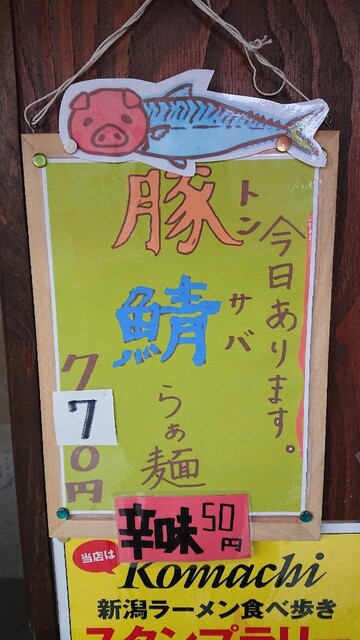 今日あります。
豚鯖らぁ麺
トン
サバ
770円
辛味50円
当店は
Komachi
新潟ラーメン食べ歩き
スタンプラリー